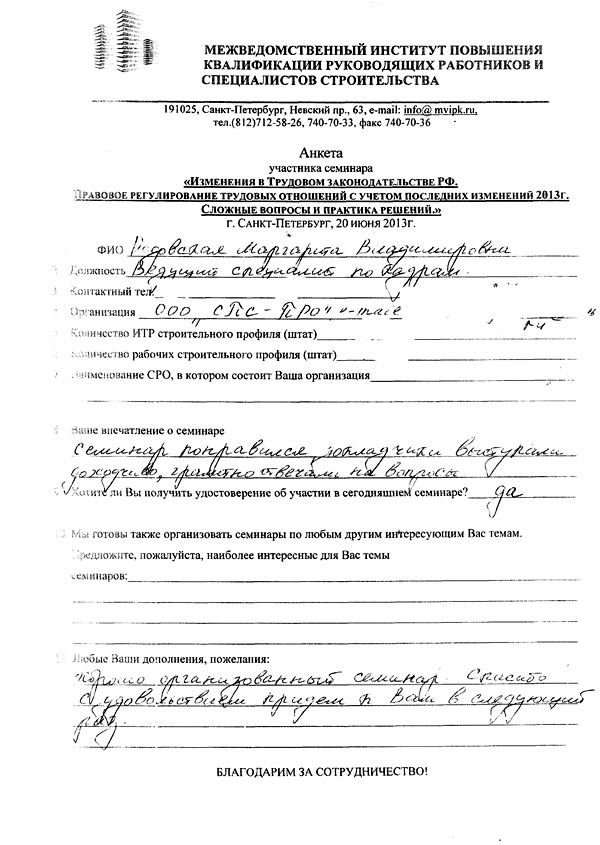 МЕЖВЕДОМСТВЕННЫЙ ИНСТИТУТ ПОВЫШЕНИЯ
КВАЛИФИКАЦИИ РУКОВОДЯЩИХ РАБОТНИКОВ И
СПЕЦИАЛИСТОВ СТРОИТЕЛЬСТВА
191025, Санкт-Петербург, Невский пр., 63, e-mail: info@ mvipk.ru,
тел.(812)712-58-26, 740-70-33, факс 740-70-36
Анкета
участника семинара
«ИЗМЕНЕНИЯ В ТРУДОВОМ ЗАКОНОДАТЕЛЬСТВЕ РФ.
ПРАВОВОЕ РЕГУЛИРОВАНИЕ ТРУДОВЫХ ОТНОШЕНИЙ С УЧЕТОМ ПОСЛЕДНИХ ИЗМЕНЕНИЙ 2013г.
СЛОЖНЫЕ ВОПРОСЫ И ПРАКТИКА РЕШЕНИЙ.»
Г. САНКТ-ПЕТЕРБУРГ, 20 ИЮНЯ 2013г.
ФИО Маргарита Владимировна
Должность Ведущий специалист по кадрам
Контактный тел
Организация ООО "СПС-ПРО" e-mail
Количество ИТР строительного профиля (штат)
Количество рабочих строительного профиля (штат)
Наименование СРО, в котором состоит Ваша организация
Ваше впечатление о семинаре
Семинар понравился, докладчики выступали
доходчиво, грамотно отвечали на вопросы
Хотите ли Вы получить удостоверение об участии в сегодняшнем семинаре? да
Мы готовы также организовать семинары по любым другим интересующим Вас темам.
Предложите, пожалуйста, наиболее интересные для Вас темы
семинаров:
Любые Ваши дополнения, пожелания:
Хорошо организованный семинар. Спасибо
С удовольствием придем к Вам в следующий
раз.
БЛАГОДАРИМ ЗА СОТРУДНИЧЕСТВО!